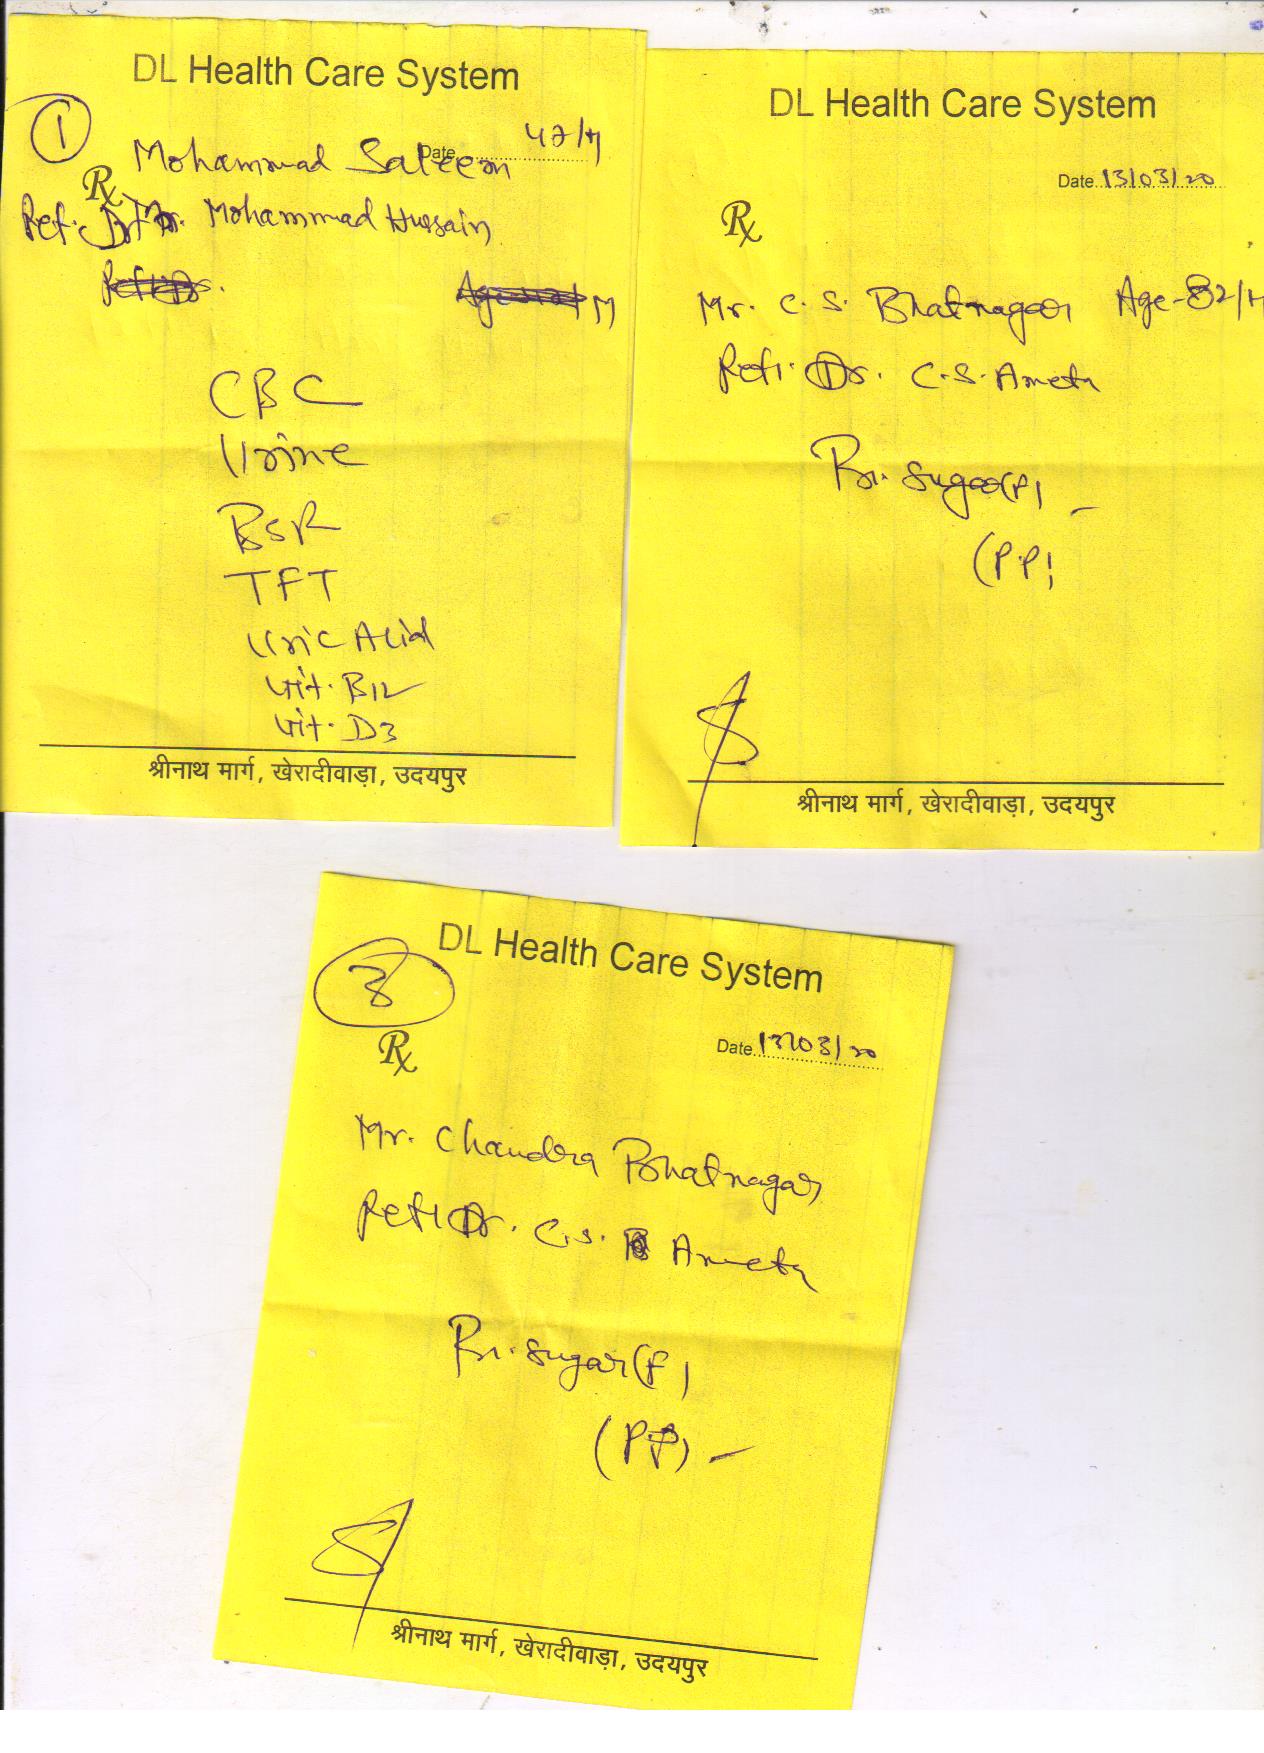 DL Health Care System
1
Date 47/M
Mohammad Saleem
Rx
Ref: Dr. Mohammad Hussain
M
CBC
Urine
BSR
TFT
Uric Acid
Vit. B12
Vit. D3
श्रीनाथ मार्ग, खेरादीवाड़ा, उदयपुर
DL Health Care System
Date 13/03/20
Rx
Mr. C. S. Bhatnagar Age-82/M
Ref: Dr. C.S. Ameta
Bl. Sugar (F)
(PP)
श्रीनाथ मार्ग, खेरादीवाड़ा, उदयपुर
DL Health Care System
Date 13/03/20
Rx
Mr. Chandra Bhatnagar
Ref: Dr. C.S. Ameta
Bl. Sugar (F)
(PP) -
श्रीनाथ मार्ग, खेरादीवाड़ा, उदयपुर